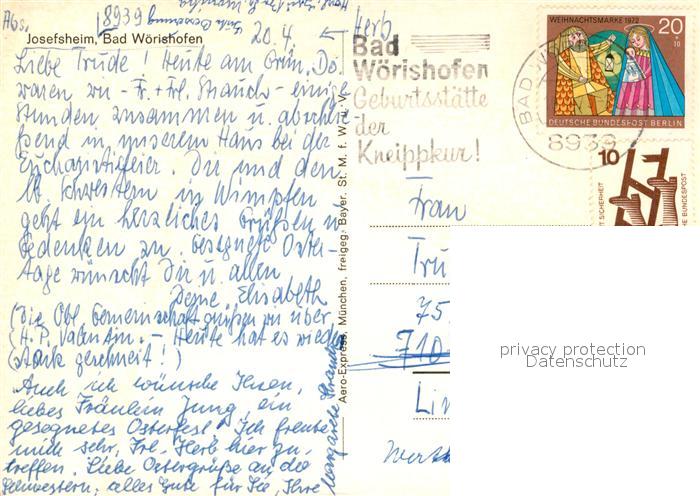 Abs. 8939
Josefsheim, Bad Wörishofen
20.4
Herb
Liebe Trude! Heute am Grün. Do.
waren wir - Fr. + Frl. Strauch - einige
Stunden zusammen u. abschlie-
ßend in unserem Haus bei der
Eucharistiefeier. Dir und den
lb. Schwestern in Wimpfen
geht ein herzliches Grüßen u.
Gedenken zu. Gesegnete Oster-
tage wünscht Dir u. allen
Deine Elisabeth
(Die Obl. Gemeinschaft grüßen wir über
H. P. Valentin. - Heute hat es wieder
stark geschneit!)
Auch ich wünsche Ihnen,
liebes Fräulein Jung, ein
gesegnetes Osterfest! Ich freute
mich sehr, Frl. Herb hier zu
treffen. Liebe Ostergrüße an die
Schwestern; alles Gute für Sie, Ihre
Margarete
Aero-Express, München, freigeg. Bayer. St. M. f. W. u. V.
Bad
Wörishofen
Geburtsstätte
der
Kneippkur!
BAD
8939
WEIHNACHTSMARKE 1972
20
+10
DEUTSCHE BUNDESPOST BERLIN
10
SICHERHEIT
BUNDESPOST
Frau
Tru
75
710
Lin
privacy protection
Datenschutz